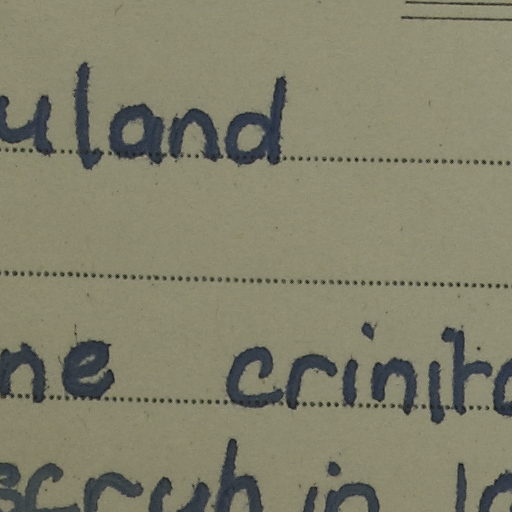 uland
ne crinita
scrub in